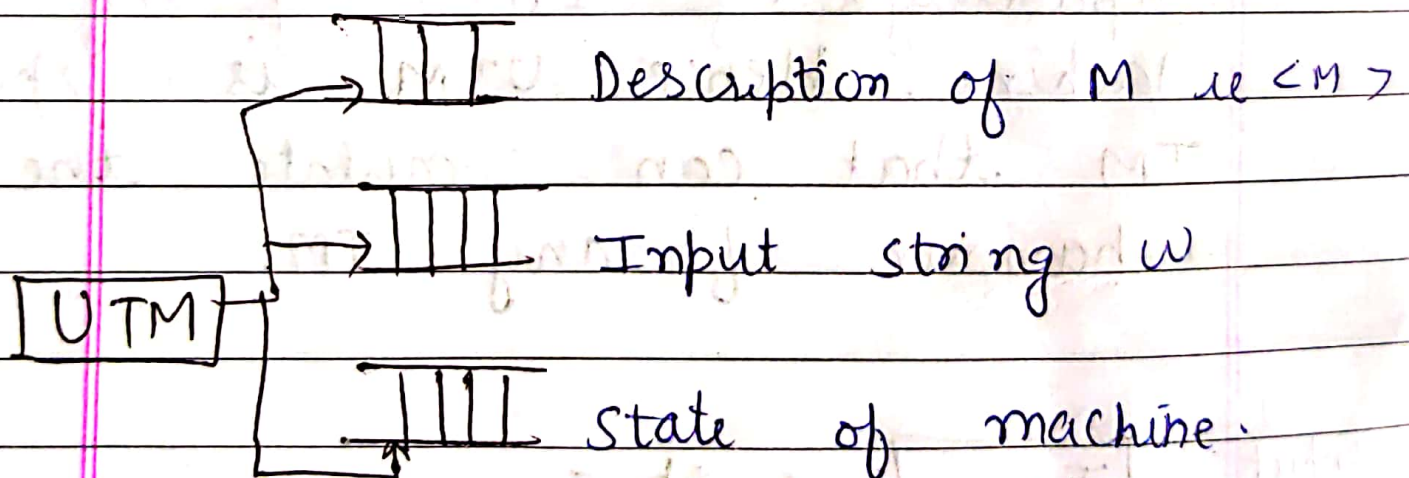 Description of M ie <M>
Input string w
UTM
State of machine.